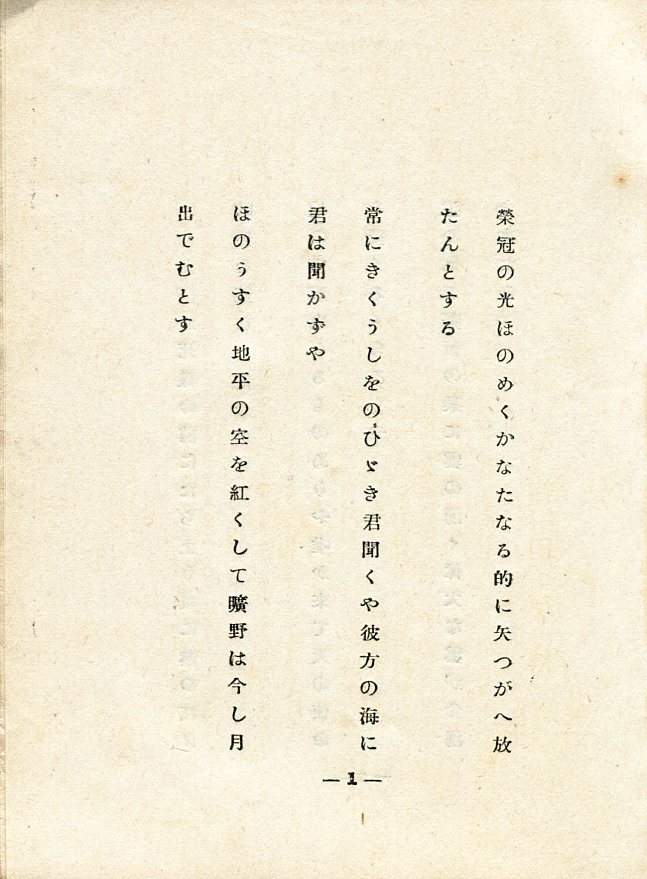 榮冠の光ほのめくかなたなる的に矢つがへ放
たんとする
常にきくうしをのひゞき君聞くや彼方の海に
君は聞かずや
ほのうすく地平の空を紅くして曠野は今し月
出でむとす
—1—